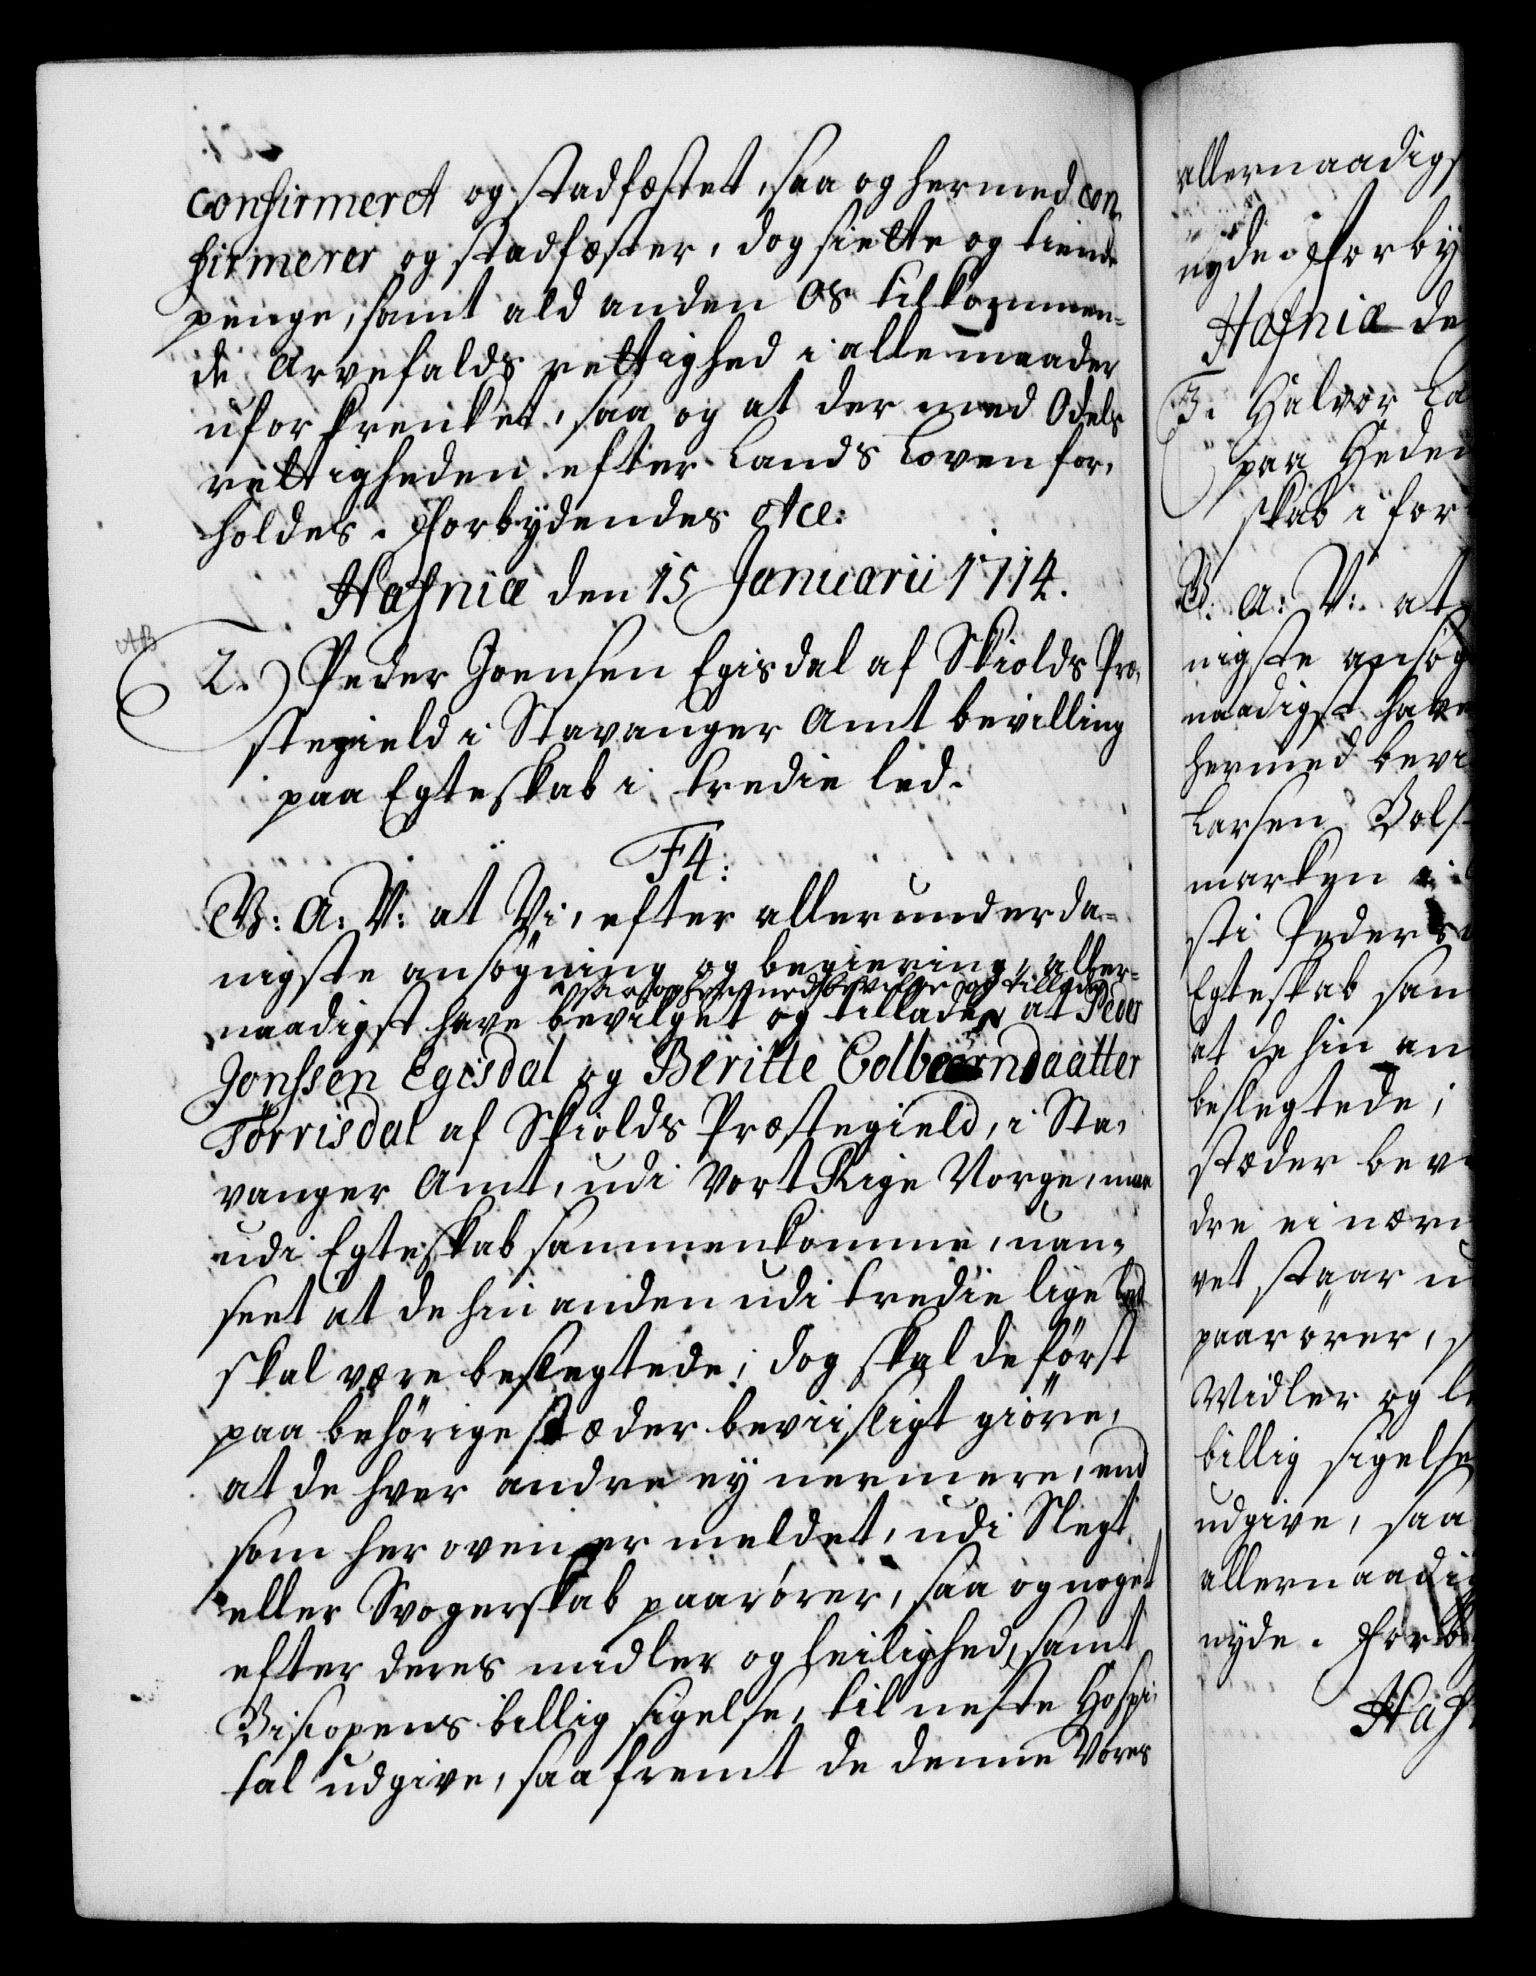 confirmeret og stadfæstet, saa og hermed con-
firmerer og stadfæster, dog siette og tiende
penge, samt ald anden Os tilkommen-
de Arvefalds rettighed i alle maader
uforkrenket, saa og at der med Odels
rettigheden efter Lands Loven for,
holdes. Forbydendes etce:
Hafniæ den 15 Januarii 1714.
AB
2.) Peder Joensen Egisdal af Skiolds Præ,
stegield i Stavanger Amt bevilling
paa Egteskab i tredie led.
F4:
V: A: V: at Vi, efter allerunderda-
nigste ansögning og begiering, aller-
saa og hermed bevilge og tillade
naadigst have bevilget og tilladet at Peder
Jonssen Egisdal og Beritte Colbeerndaatter
Törrisdal af Skiolds Præstegield, i Sta,
vanger Amt, udi Vort Rige Norge, maa
udi Egteskab sammenkomme, uan-
seet at de hin anden udi tredie lige led
skal være beslegtede; dog skal de först
paa behörige stæder beviisligt giöre,
at de hver andre ey nermere, end
som her oven er meldet, udi Slegt
eller Svogerskab paarörer, saa og noget
efter deres midler og leilighed, samt
Biscopens billig sigelse, til neste Hospi,
tal udgive, saafremt de denne Vores
allernaadigs
nyde. Forby
Hafniæ de
3. Halvor La
paa Heden
skab i for
V: A: V: at
nigste ansög
naadigst have
hermed bevi
Larsen Bols
marken i
sti Peders
Egteskab sam
at de hin an
beslegtede;
stæder bevi
dre ei nærm
vet staar u
paarörer, s
Midler og le
billig sigelse
udgive, saa
allernaadig
nyde. Forby
Haf